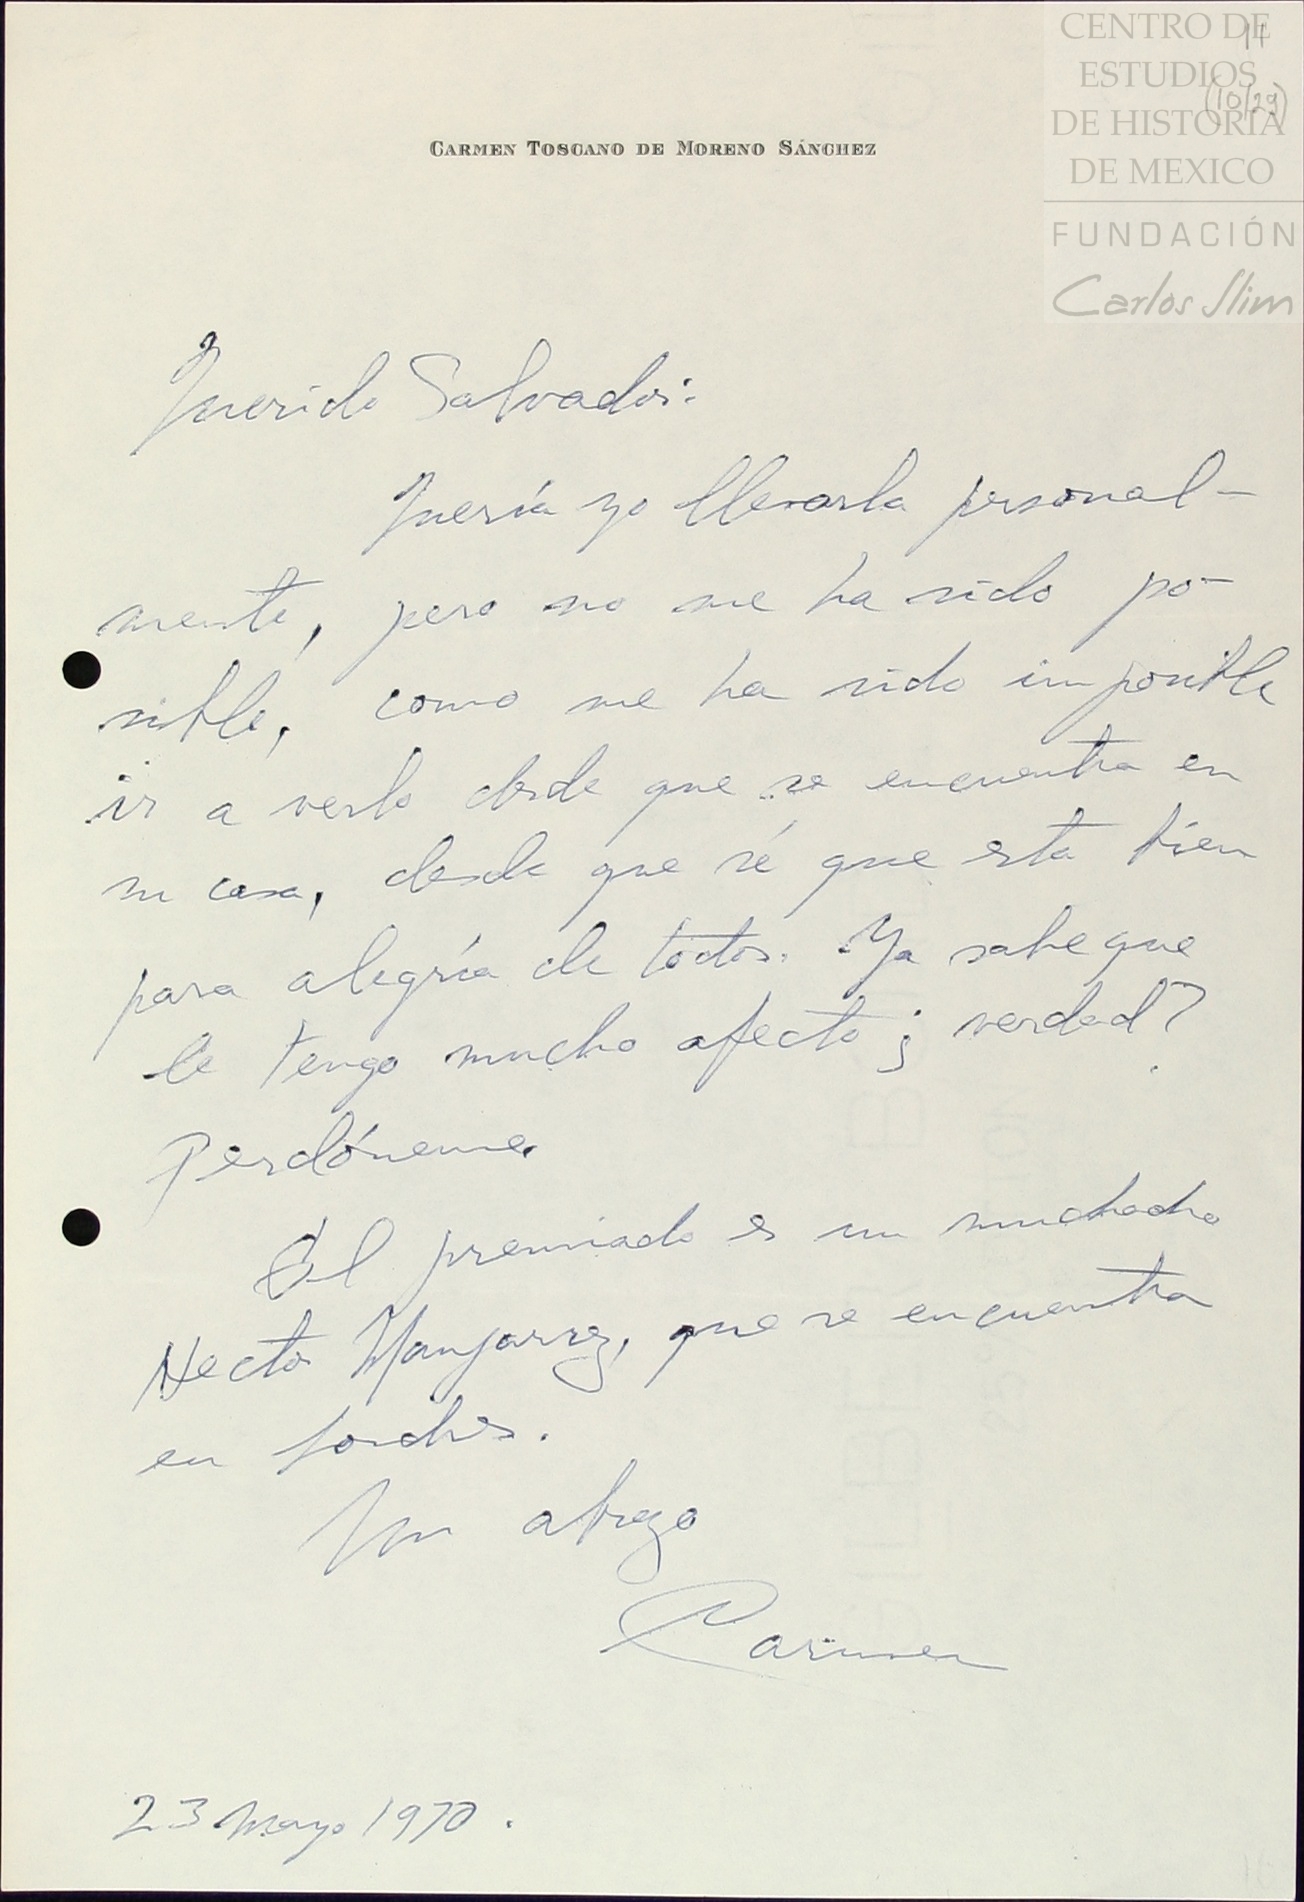 CENTRO DE
ESTUDIOS
DE HISTORIA
DE MEXICO
FUNDACIÓN
Carlos Slim
14
(10/29)
CARMEN TOSCANO DE MORENO SÁNCHEZ
Querido Salvador:
Quería yo llevarla personal-
mente, pero no me ha sido po-
sible, como me ha sido imposible
ir a verlo desde que se encuentra en
su casa, desde que sé que esta bien
para alegría de todos. Ya sabe que
le tengo mucho afecto ¿ verdad?
Perdóneme.
El premiado es un muchacho
Hector Manjarrez, que se encuentra
en Londres.
Un abrazo
Carmen
23 Mayo 1970.
16